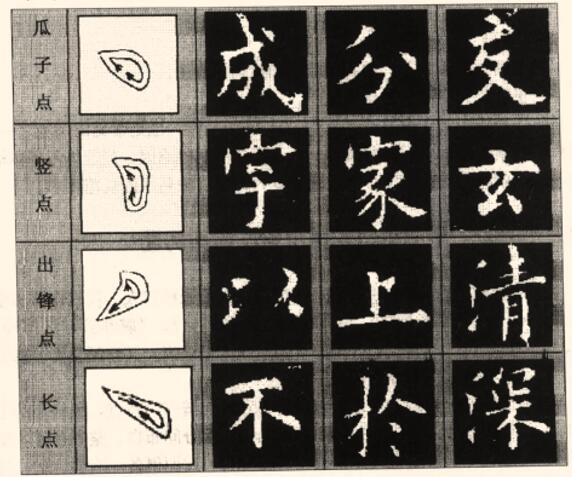 瓜子点 成 分
竖点 宇 家 玄
出锋点 以 上 清
长点 不 於 深